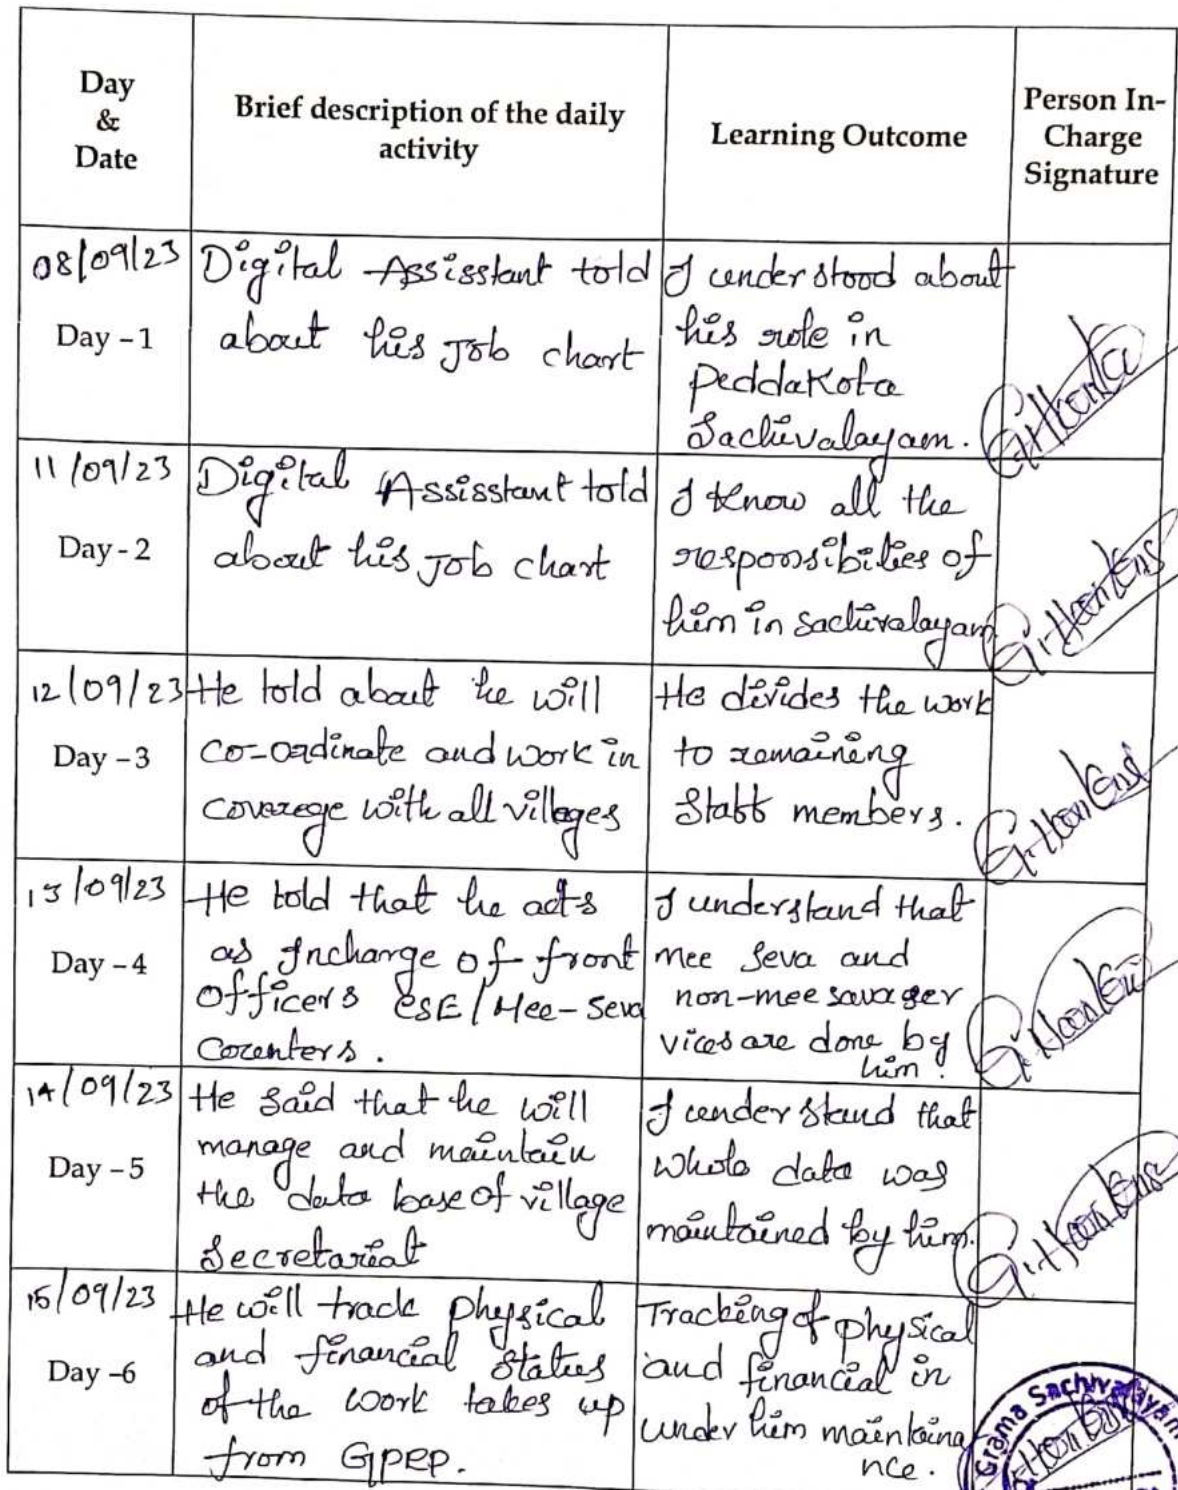 Day
&
Date
Brief description of the daily
activity
Learning Outcome
Person In-
Charge
Signature
08/09/23
Day - 1
Digital Assisstant told
about his Job chart
I understood about
his role in
Peddakota
Sachivalayam.
11/09/23
Day - 2
Digital Assisstant told
about his Job chart
I know all the
responsibilies of
him in sachivalayam
12/09/23
Day - 3
He told about he will
co-ordinate and work in
coverege with all villeges
He divides the work
to remaining
Staff members.
13/09/23
Day - 4
He told that he acts
as Incharge of front
Officers ESE/Mee-Seva
Counters.
I understand that
mee seva and
non-mee sava ser
vices are done by
him.
14/09/23
Day - 5
He said that he will
manage and maintain
the data base of village
Secretariat
I understand that
whole data was
maintained by him.
15/09/23
Day -6
He will track physical
and financial status
of the work takes up
from GPEP.
Tracking of physical
and financial in
under him maintaina
nce.
Grama Sachivalayam